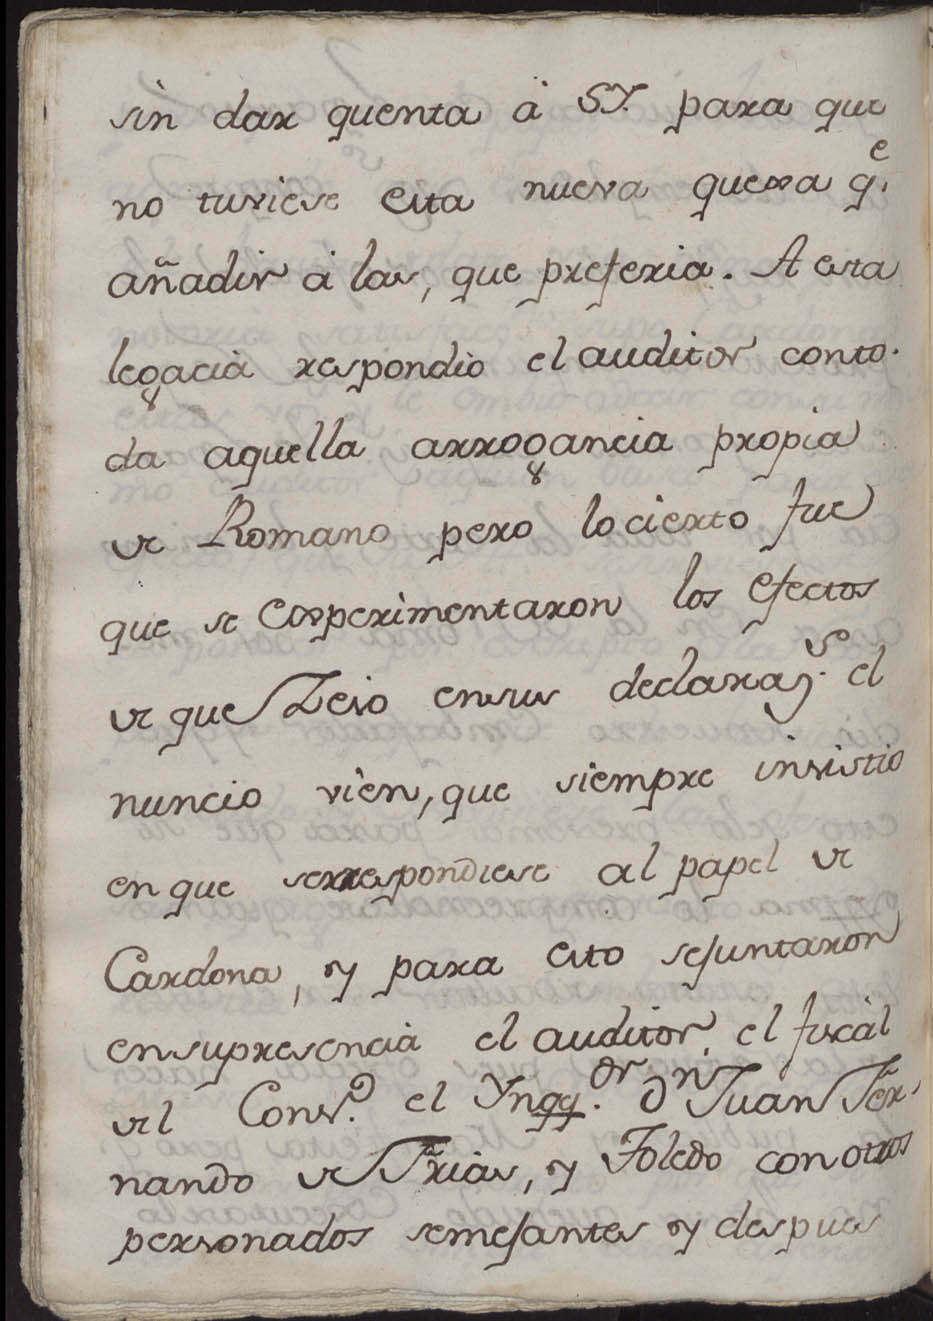 sin dar quenta à SY. para que
no tuviese esta nueva quexa q.e
añadir à las, que preferia. A esta
legacia respondio el auditor conto-
da aquella arrogancia propia
de Romano pero lo cierto fue
que se experimentaron los efectos
de que Leio ensus declaraz.s el
nuncio vien, que siempre insistio
en que serrespondiese al papel de
Cardona, y para esto sejuntaron
ensupresencia el auditor, el fiscal
del Cons.o el Ynqq.or D.n Juan Fer-
nando de Frias, y Toledo con otros
personados semejantes y despues